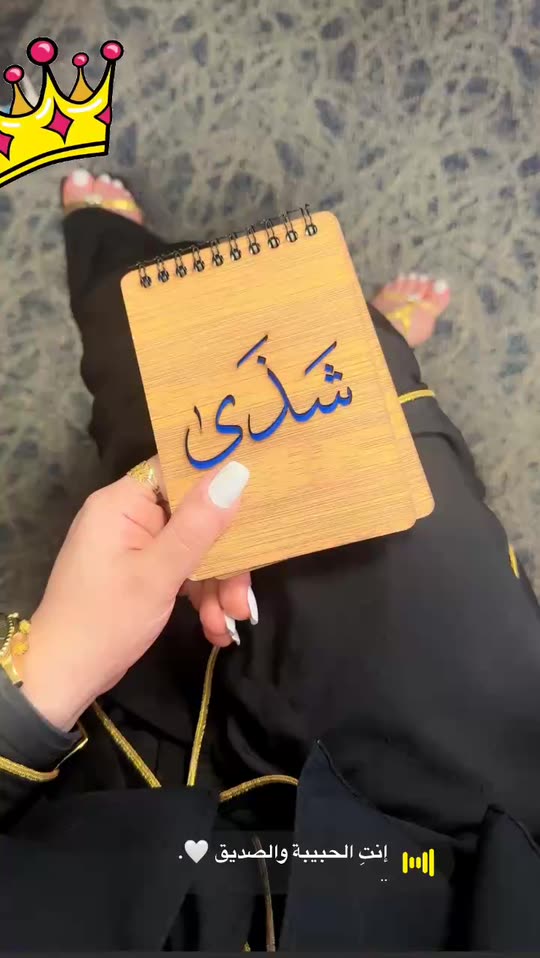 شَذَى
إنتِ الحبيبة والصديق 🤍.
..